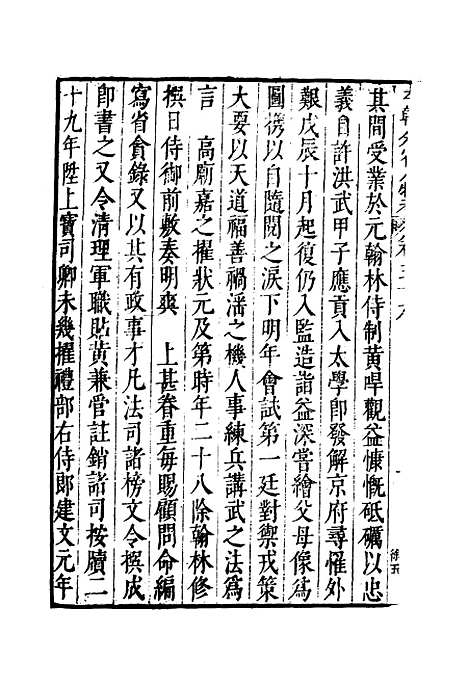 其間受業於元翰林侍制黄㫤觀益慷慨砥礪以忠
義自許洪武甲子應貢入太學即發解京府尋罹外
艱戊辰十月起復仍入監造詣益深嘗繪父母像爲
圖携以自隨閲之淚下明年會試第一廷對禦戎策
大要以天道福善禍滛之機人事練兵講武之法爲
言　高廟嘉之擢狀元及第時年二十八除翰林修
撰日侍御前敷奏明爽　上甚眷重每賜顧問命編
寫省貪錄又以其有政事才凡法司諸榜文令撰成
即書之又令清理軍職貼黄兼管註銷諸司按牘二
十九年陞上寳司卿未幾擢禮部右侍郎建文元年